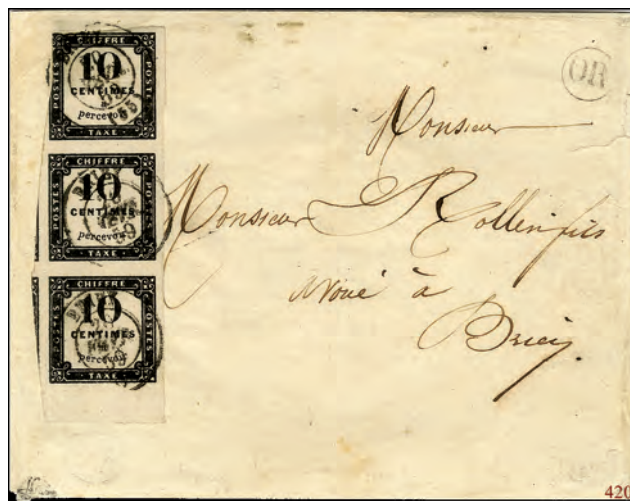 CHIFFRE
POSTES
10
CENTIMES
à
percevoir
POSTES
TAXE
CHIFFRE
POSTES
10
CENTIMES
percevoir
POSTES
TAXE
CHIFFRE
POSTES
10
CENTIMES
percevoir
POSTES
TAXE
OR
Monsieur
Monsieur Rollin fils
avoué à
Briey
420